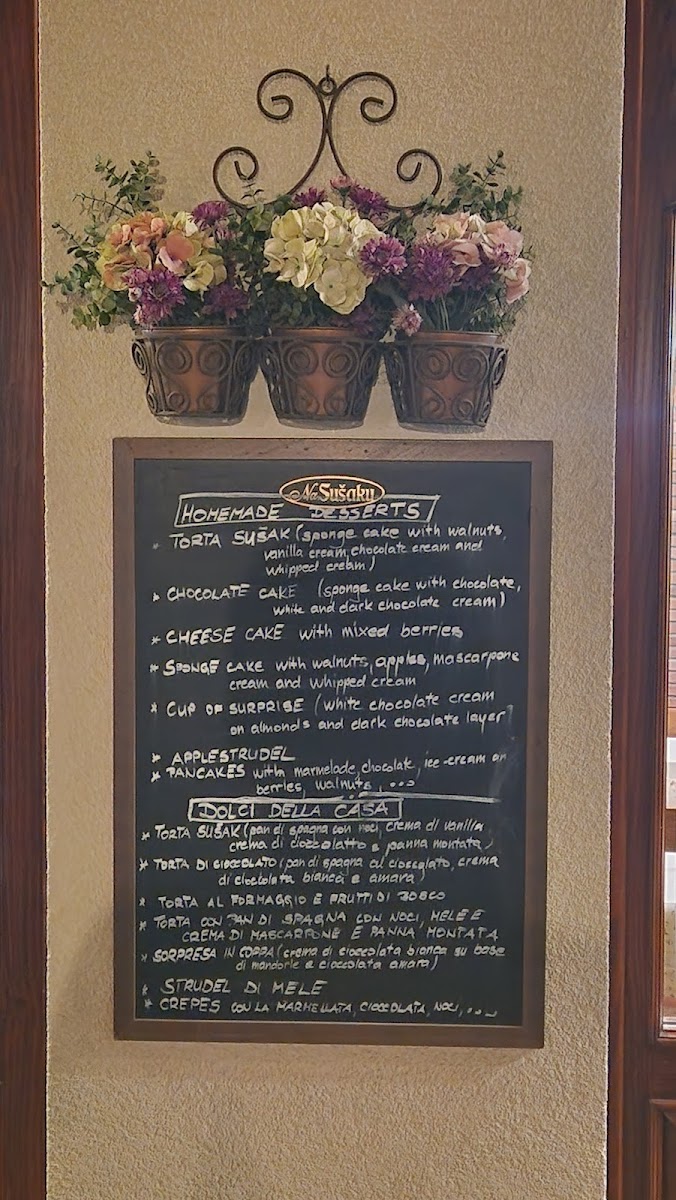 Na Sušaku
HOMEMADE DESSERTS
* TORTA SUŠAK (sponge cake with walnuts,
vanilla cream, chocolate cream and
whipped cream)
* CHOCOLATE CAKE (sponge cake with chocolate,
white and dark chocolate cream)
* CHEESE CAKE with mixed berries
* SPONGE CAKE with walnuts, apples, mascarpone
cream and whipped cream
* CUP OF SURPRISE (white chocolate cream
on almonds and dark chocolate layer)
* APPLESTRUDEL
* PANCAKES with marmelade, chocolate, ice-cream or
berries, walnuts, ...
DOLCI DELLA CASA
* TORTA SUŠAK (pan di spagna con noci, crema di vanilia,
crema di cioccolatto e panna montata)
* TORTA DI CIOCCOLATO (pan di spagna al cioccolato, crema
di cioccolata bianca e amara)
* TORTA AL FORMAGGIO E FRUTTI DI BOSCO
* TORTA CON PAN DI SPAGNA CON NOCI, MELE E
CREMA DI MASCARPONE E PANNA MONTATA
* SORPRESA IN COPPA (crema di cioccolata bianca su base
di mandorle e cioccolata amara)
* STRUDEL DI MELE
* CREPES CON LA MARMELLATA, CIOCCOLATA, NOCI, ...